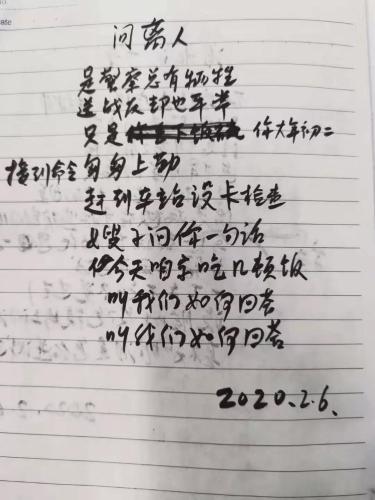 问离人
是警察总有牺牲
送战友却也平常
只是 你大年初二
接到命令匆匆上勤
赶到车站设卡检查
嫂子问你一句话
今天咱家吃几顿饭
叫我们如何回答
叫我们如何回答
2020.2.6.